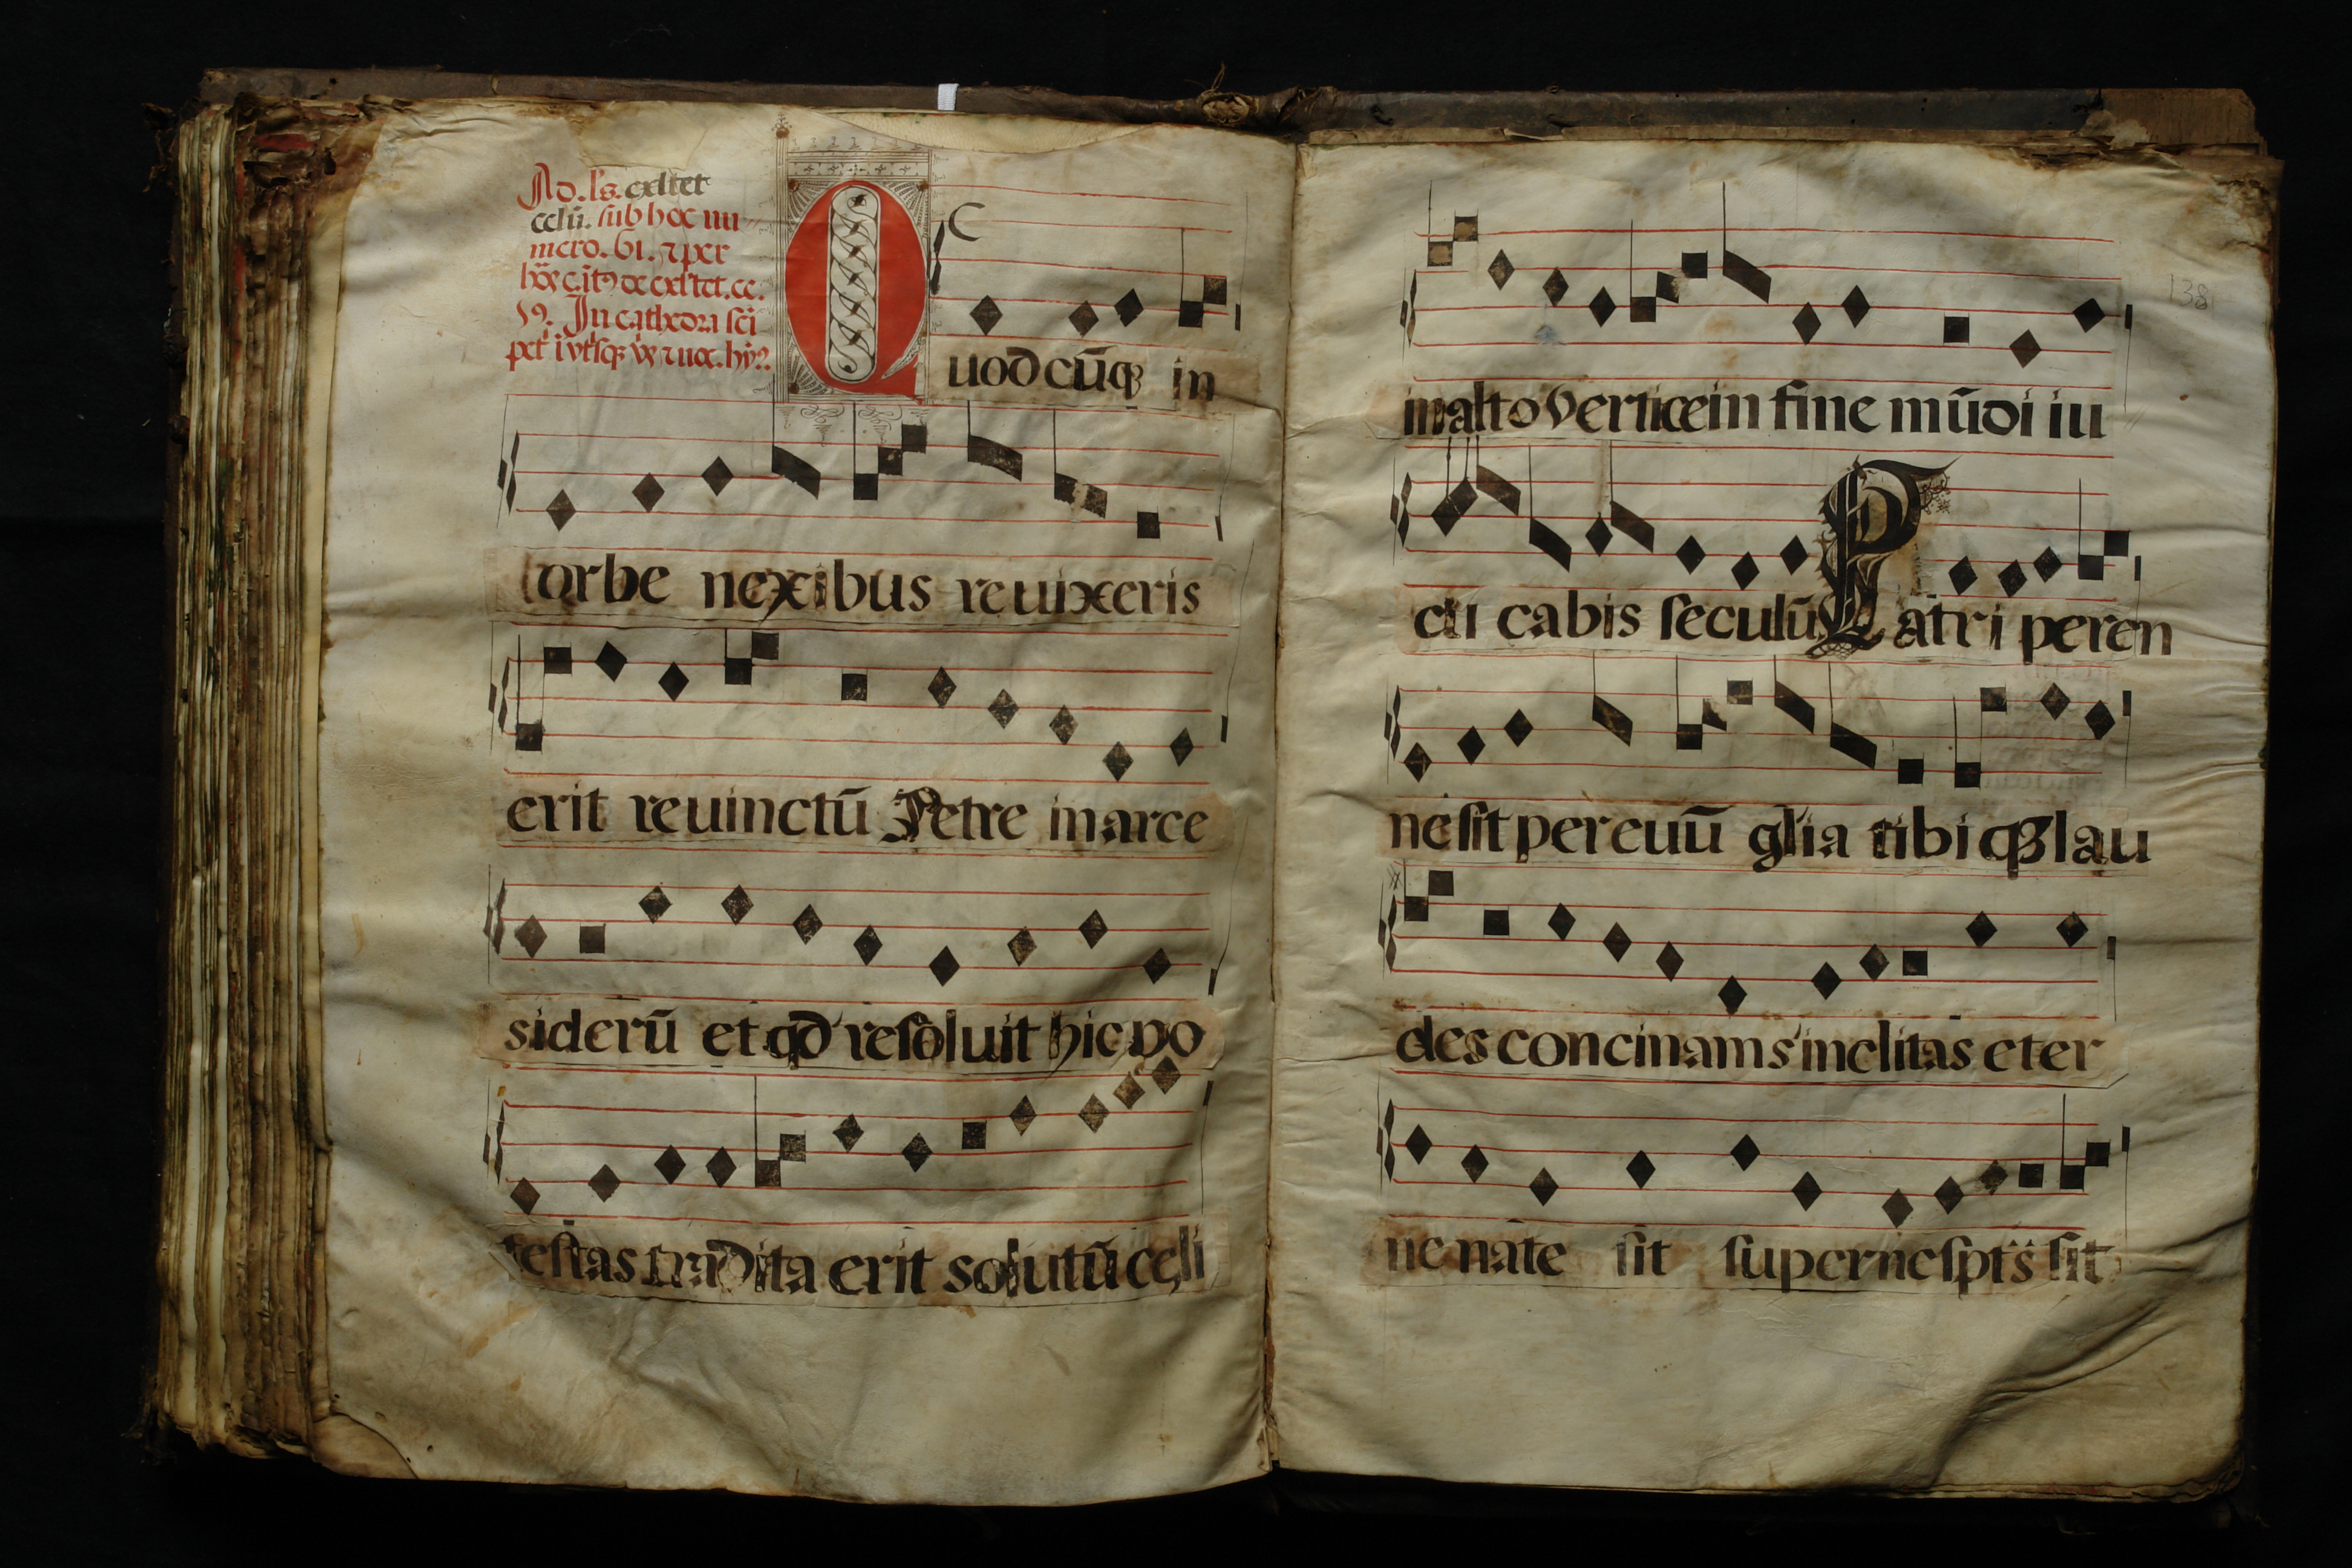 Ad. ls. exltet
celū. sub hoc nu
mero. 61. ⁊ per
In cathedra sc̄i
Quodcūq̃ in
orbe nexibus reuixeris
erit reuinctū Petre in arce
siderū et qd̄ resoluit hic po
testas tradita erit solutū celi
138
in alto vertice in fine mūdi iu
di cabis seculū Patri peren
ne sit per euū glia tibi qz lau
des concinam s inclitas eter
ne nate sit superne spts sit